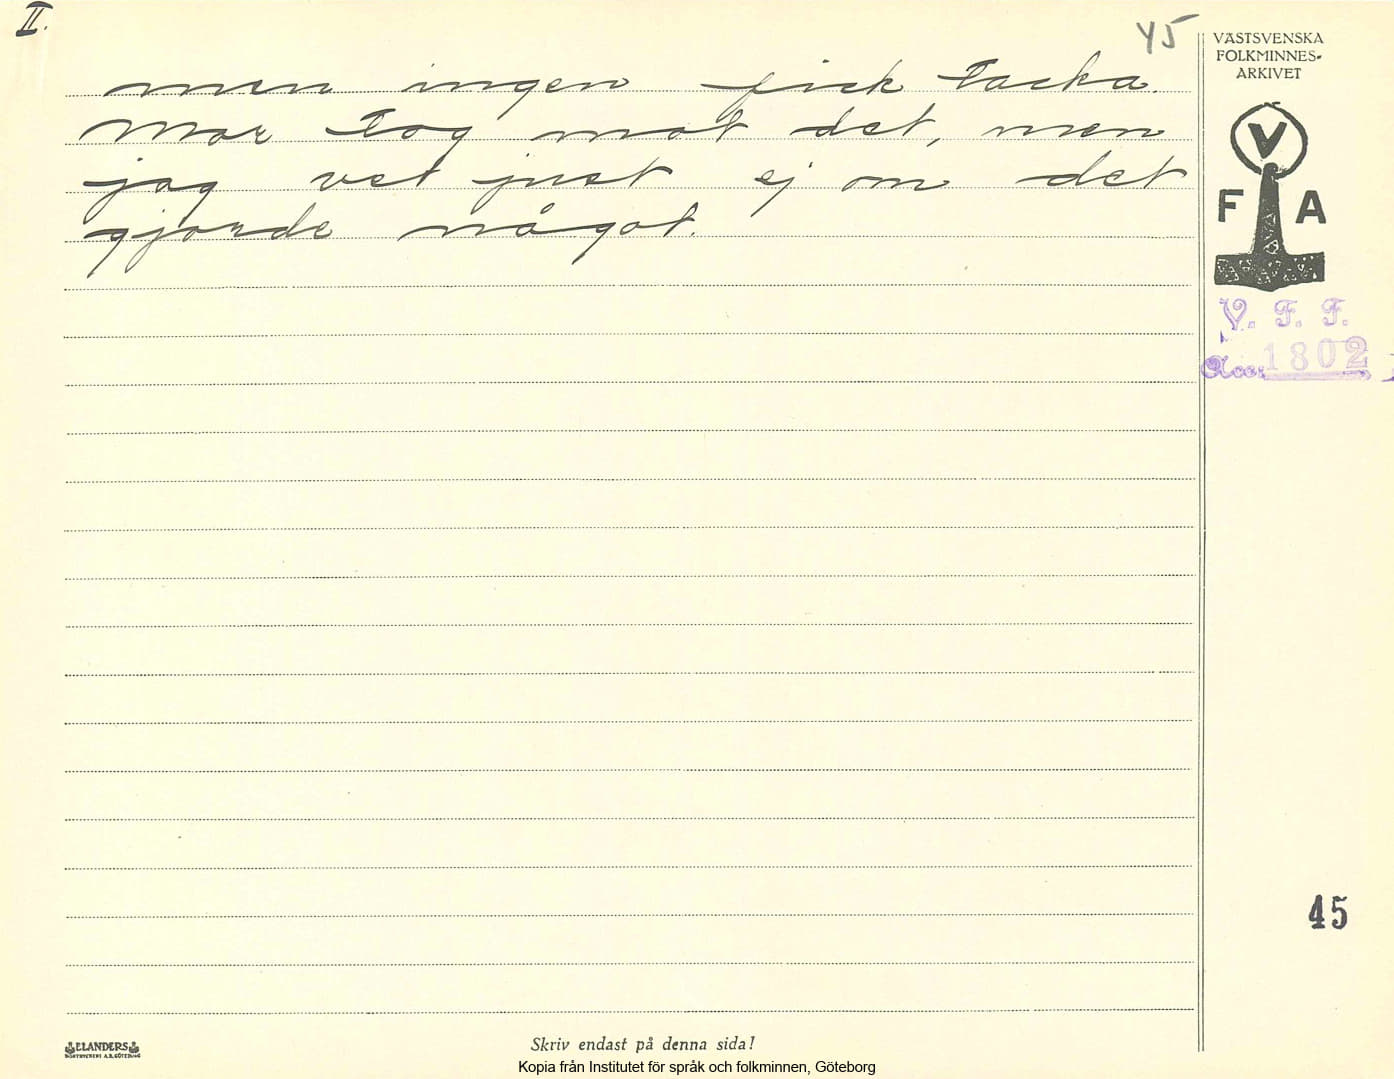 II.
45
VÄSTSVENSKA
FOLKMINNES-
ARKIVET
men ingen fick tacka.
Mor tog mot det, men
jag vet just ej om det
gjorde något.
V
F A
V. F. F.
Acc. 1802
45
ELANDERS
Skriv endast på denna sida!
Kopia från Institutet för språk och folkminnen, Göteborg